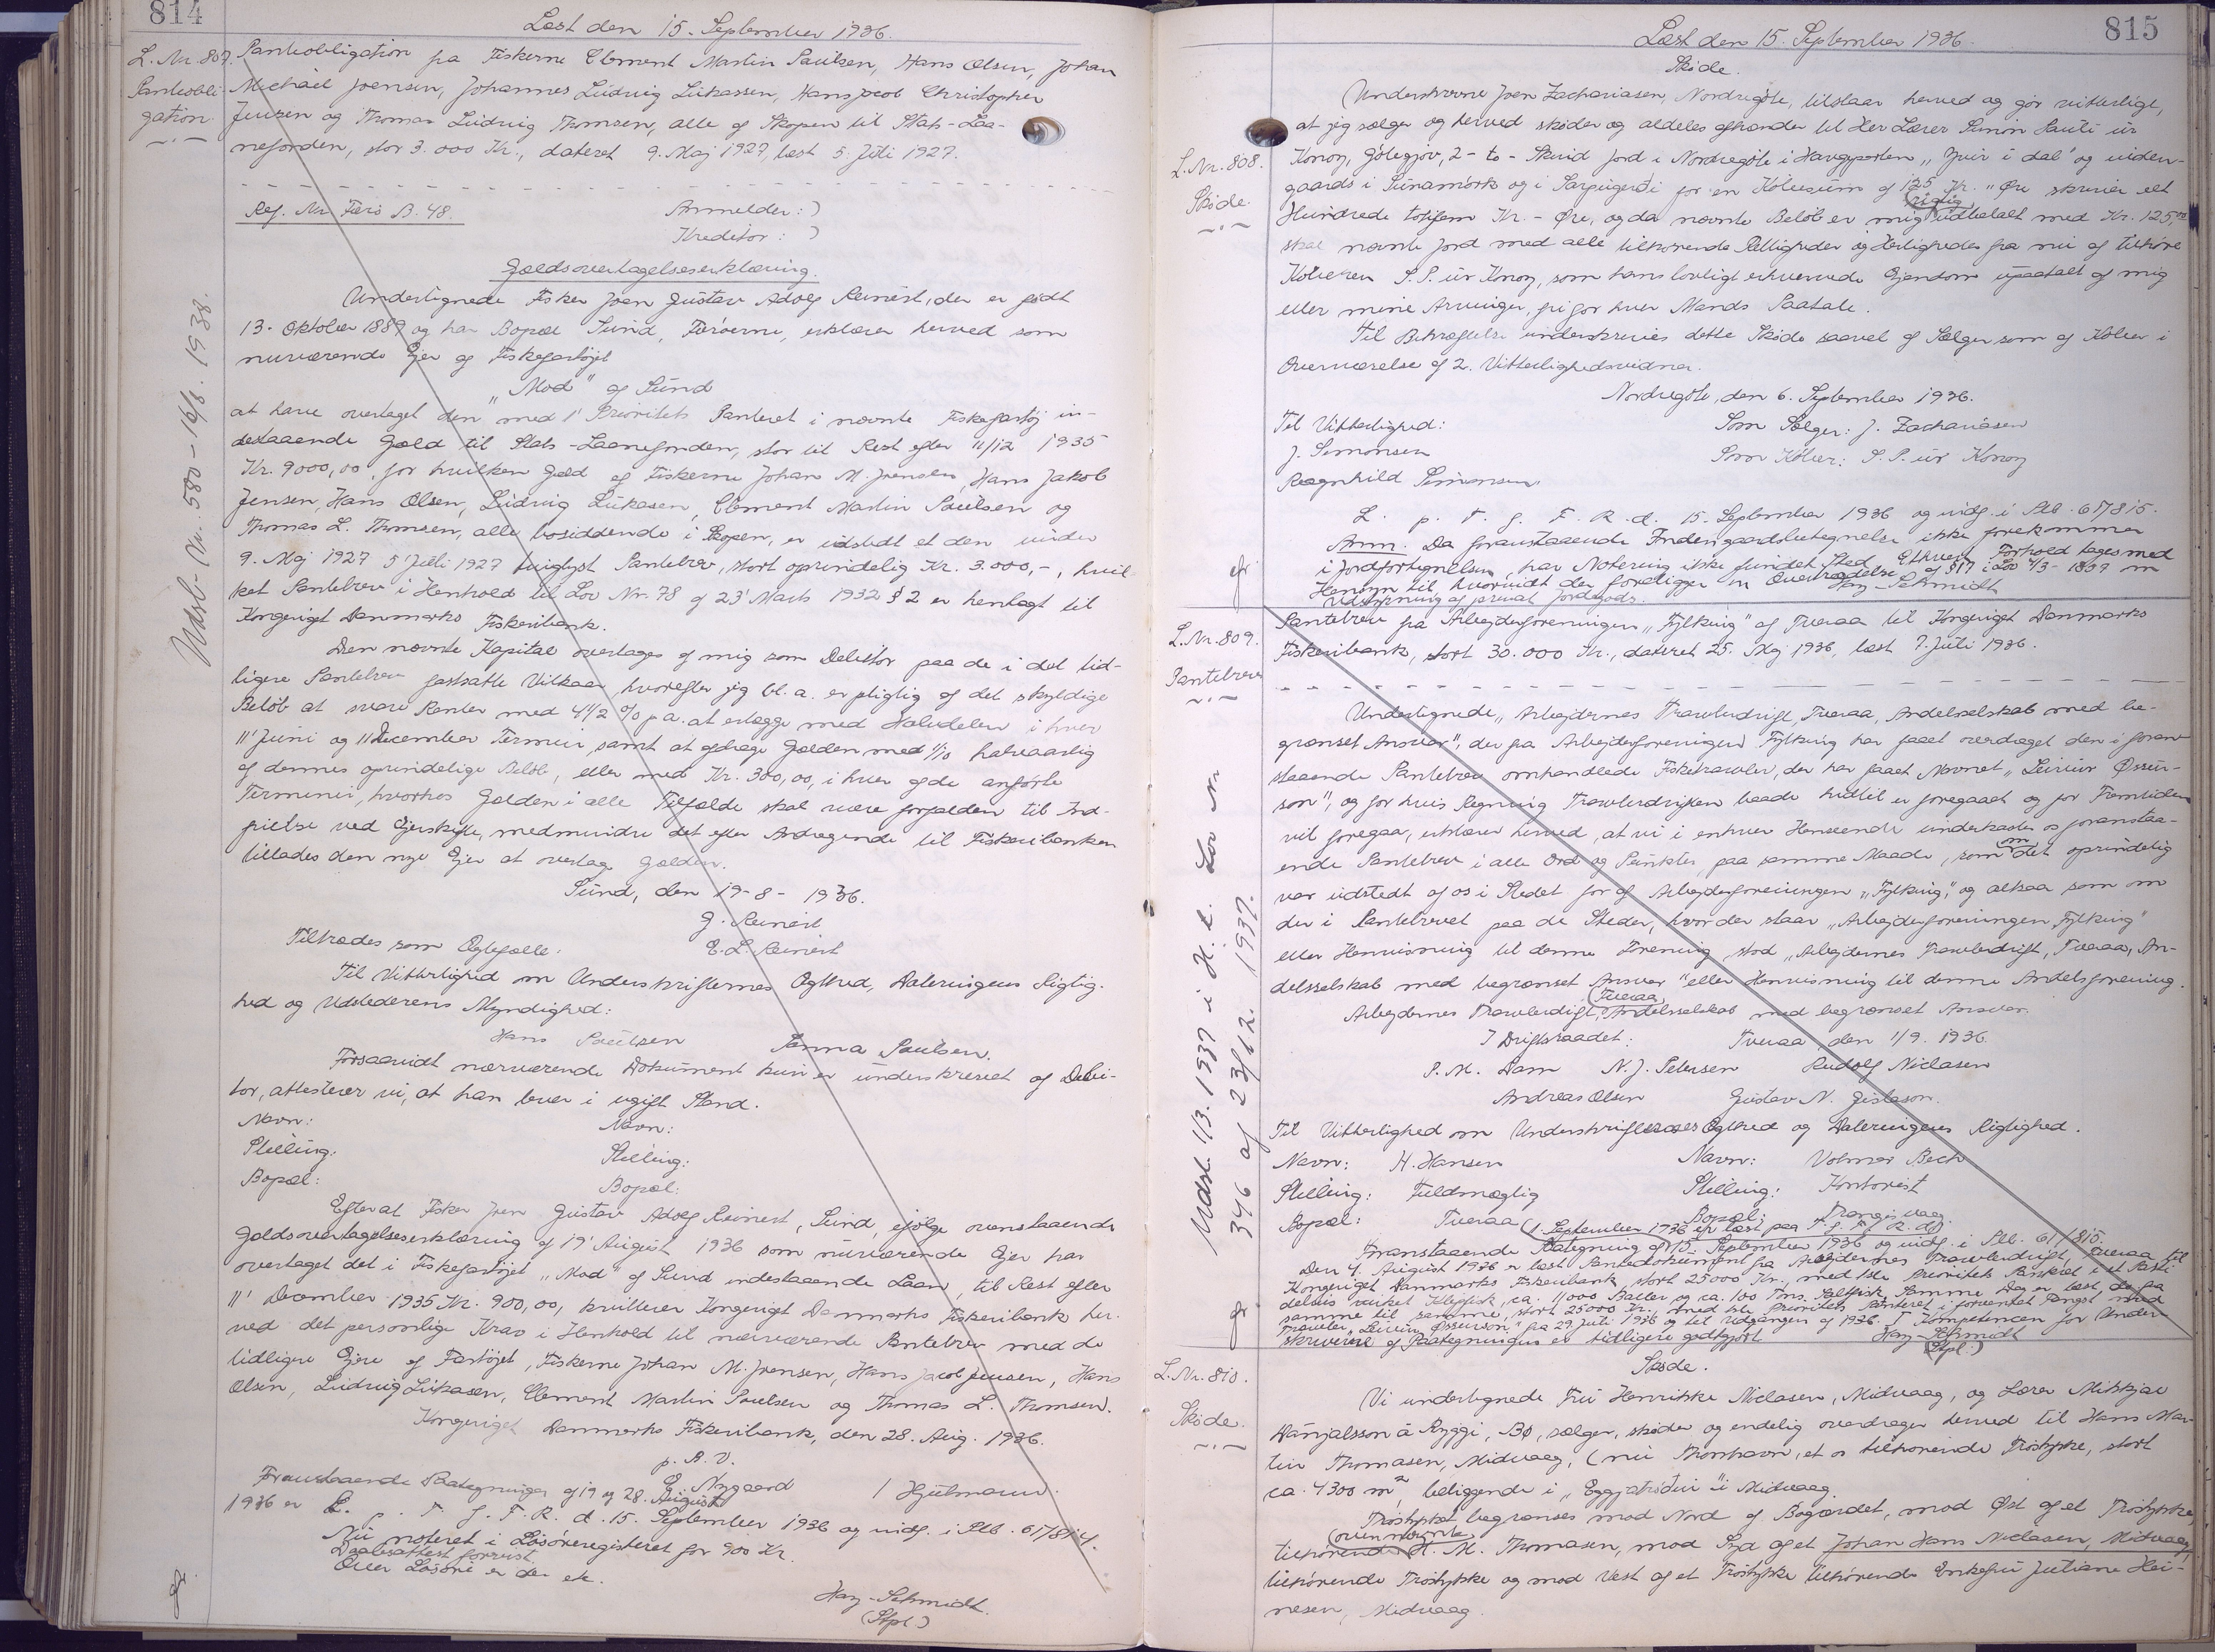 814
Læst den 15. September 1936.
L. Nr. 807.
Pantobli-
gation
Pantobligation fra Fiskerne Clement Martin Poulsen, Hans Olsen, Johan
Michael Joensen, Johannes Ludvig Lukassen, Hans Jacob Christopher
Jensen og Thomas Ludvig Thomsen, alle af Skopen til Stats-Laa-
nefonden, stor 3.000 Kr., dateret 9. Maj 1927, læst 5. Juli 1927.
Reg. Nr. Færø B. 48. Anmelder:)
Kreditor:)
Gældsovertagelseserklæring.
Undertegnede Fisker Joen Gustav Adolf Reinert, der er født
13. Oktober 1889 og har Bopæl Sund, Færøerne, erklærer herved som
nuværende Ejer af Fiskefartøjet
"Mod" af Sund
at have overtaget den med 1' Prioritets Panteret i nævnte Fiskefartøj in-
destaaende Gæld til Stats-Laanefonden, stor til Rest efter 11/12 1935
Kr. 9000,00, for hvilken Gæld af Fiskerne Johan M. Joensen, Hans Jakob
Jensen, Hans Olsen, Ludvig Lukasen, Clement Martin Poulsen og
Thomas L. Thomsen, alle bosiddende i Skopen, er udstedt et den under
9. Maj 1927 5' Juli 1927 tinglyst Pantebrev, stort oprindelig Kr. 3.000,-, hvil-
ket Pantebrev i Henhold til Lov Nr. 78 af 23' Marts 1932 § 2 er henlagt til
Kongeriget Danmarks Fiskeribank.
Den nævnte Kapital overtages af mig som Debitor paa de i det tid-
ligere Pantebrev fastsatte Vilkaar, hvorefter jeg bl. a. er pligtig af det skyldige
Beløb at svare Renter med 4 1/2 % p a. at erlægge med Halvdelen i hver
11' Juni og 11' December Termin, samt at afdrage Gælden med 1/10 halvaarlig
af dennes oprindelige Beløb, eller med Kr. 300,00, i hver af de anførte
Terminer, hvorhos Gælden i alle Tilfælde skal være forfalden til Ind-
frielse ved Ejerskifte, medmindre det efter Andragende til Fiskeribanken
tillades den nye Ejer at overtage Gælden.
Sund, den 19-8-1936.
G. Reinert
Tiltrædes som Ægtefælle: E. L. Reinert
Til Vitterlighed om Underskrifternes Ægthed, Dateringens Rigtig-
hed og Udstederens Myndighed:
Hans Poulsen Sanna Poulsen.
Forsaavidt nærværende Dokument kun er underskrevet af Debi-
tor, attesterer vi, at han lever i ugift Stand.
Navn: Navn:
Stilling: Stilling:
Bopæl: Bopæl:
Efter at Fisker Joen Gustav Adolf Reinert, Sund, ifølge ovenstaaende
Gældsovertagelseserklæring af 19' August 1936 som nuværende Ejer har
overtaget det i Fiskefartøjet "Mod" af Sund indestaaende Laan, til Rest efter
11' December 1935 Kr. 900,00, kvitterer Kongeriget Danmarks Fiskeribank her-
ved det personlige Krav i Henhold til nærværende Pantebrev med de
tidligere Ejere af Fartøjet, Fiskerne Johan M. Joensen, Hans Jacob Jensen, Hans
Olsen, Ludvig Lukasen, Clement Martin Poulsen og Thomas L. Thomsen.
Kongeriget Danmarks Fiskeribank, den 28. Aug. 1936.
p. B. V.
E. Nygaard / Hjulmann.
Foranstaaende Paategninger af 19 og 28. August
1936 er L. p. F. J. F. R. d. 15. September 1936 og indf. i Ptb. 61/814.
Nu noteret i Løsøreregisteret for 900 Kr.
Daabsattest forevist.
Over Løsøre er der etc.
Hay-Schmidt.
(Stpl.)
Udsl. Nr. 580 - 16/8. 1938.
815
Læst den 15. September 1936.
Skøde.
L. Nr. 808.
Skøde.
Underskrevne Joen Zachariasen, Nordregöte, tilstaar herved og gør vitterligt,
at jeg sælger og herved skøder og aldeles afhænder til Her Lærer Simin Pauli úr
Konoy, Götegjov, 2- to - Skind Jord i Nordregöte i Havgeparten "Yvir i dal" og uden-
gaards i Súnamörk og i Sarpugerði for en Købesum af 125 Kr. " Øre skriver et
Hundrede totifem Kr. - Øre, og da nævnte Beløb er mig rigtig udbetalt med Kr. 125,00
skal nævnte Jord med alle tilhørende Rettigheder og Herligheder fra nu af tilhøre
Køberen S. P. úr Konoy, som hans lovligt erhvervede Ejendom upaatalt af mig
eller mine Arvinger, fri for hver Mands Paatale.
Til Bekræftelse underskrives dette Skøde saavel af Sælger som af Køber i
Overværelse af 2. Vitterlighedsvidner.
Nordregöte, den 6. September 1936.
Til Vitterlighed: Som Sælger: J. Zachariasen
J. Simonsen Som Køber: S. P. úr Konoy
Ragnhild Simonsen.
L. p. F. J. F. R. d. 15. September 1936 og indf. i Ptb. 61/815.
Anm. Da foranstaaende Indengaardsbetegnelse ikke forekommer
i Jordfortegnelsen, har Notering ikke fundet Sted. Ethvert Forhold tages med
Hensyn til, hvorvidt der foreligger en Overtrædelse af §17 i Lov 4/3-1857 om
Udstykning af privat Jordegods. Hay-Schmidt
L. Nr. 809.
Pantebrev
Pantebrev fra Arbejderforeningen "Fylking" af Tveraa til Kongeriget Danmarks
Fiskeribank, stort 30.000 Kr., dateret 25. Maj 1936, læst 7. Juli 1936.
Undertegnede "Arbejdernes Trawlerdrift, Tveraa, Andelsselskab med be-
grænset Ansvar", der fra Arbejderforeningen Fylking har faaet overdraget den i foran-
staaende Pantebrev omhandlede Fisketrawler, der har faaet Navnet "Leivur Øssur-
son", og for hvis Regning Trawlerdriften baade hidtil er foregaaet og for Fremtiden
vil foregaa, erklærer herved, at vi i enhver Henseende underkaster os foranstaa-
ende Pantebrev i alle Ord og Punkter, paa samme Maade, som om det oprindelig
var udstedt af os i Stedet for af Arbejderforeningen "Fylking", og altsaa som om
der i Pantebrevet paa de Steder, hvor der staar "Arbejderforeningen Fylking"
eller Henvisning til denne Forening, stod "Arbejdernes Trawlerdrift, Tveraa, An-
delsselskab med begrænset Ansvar" eller Henvisning til denne Andelsforening.
Arbejdernes Trawlerdrift, Tveraa, Andelsselskab med begrænset Ansvar.
I Driftsraadet: Tveraa, den 1/9. 1936.
P. M. Dam N. J. Petersen Rudolf Niclasen
Andreas Olsen Gustav N. Gislason.
Til Vitterlighed om Underskrifternes Ægthed og Dateringens Rigtighed.
Navn: H. Hansen Navn: Volmar Bech
Stilling: Fuldmægtig Stilling: Kontorist
Bopæl: Tveraa Bopæl: Trangisvaag.
Foranstaaende Paategning af 1. September 1936 er læst paa F. J. F. R. d. 15. September 1936 og indf. i Ptb. 61/815.
Den 4. August 1936 er læst Pantedokument fra Arbejdernes Trawlerdrift, Tveraa til
Kongeriget Danmarks Fiskeribank, stort 25000 Kr., med 1ste Prioritets Panteret i et Parti
delvis virket Klipfisk, ca. 11000 Baller og ca. 100 Tns. Saltfisk. Samme Dag er læst do fra
samme til samme, stort 25000 Kr., med 1ste Prioritets Panteret i forventet Fangst med
Trawler "Leivur Øssurson" fra 29. Juli 1936 og til Udgangen af 1936. Kompetencen for Under-
skriverne af Paategningen er tidligere godtgjort. Hay-Schmidt
(Stpl.)
Udsl. 1/3. 1937 i H. t. Lov Nr
346 af 23/12. 1937.
L. Nr. 810.
Skøde.
Skøde.
Vi undertegnede Fru Henrikke Niclasen, Midvaag, og Lærer Mikkjal
Dánjalsson á Ryggi, Bø, sælger, skøder og endelig overdrager herved til Hans Mar-
tin Thomasen, Midvaag, (nu Thorshavn, et os tilhørende Trøstykke, stort
ca. 4300 m² beliggende i "Eggjatrøðini" i Midvaag.
Trøstykket begrænses mod Nord af Bøgærdet, mod Øst af et Trøstykke,
tilhørende ovennævnte H. M. Thomasen, mod Syd af et Johan Hans Niclasen, Midvaag,
tilhørende Trøstykke og mod Vest af et Trøstykke tilhørende Enkefru Juliane Hei-
nesen, Midvaag.